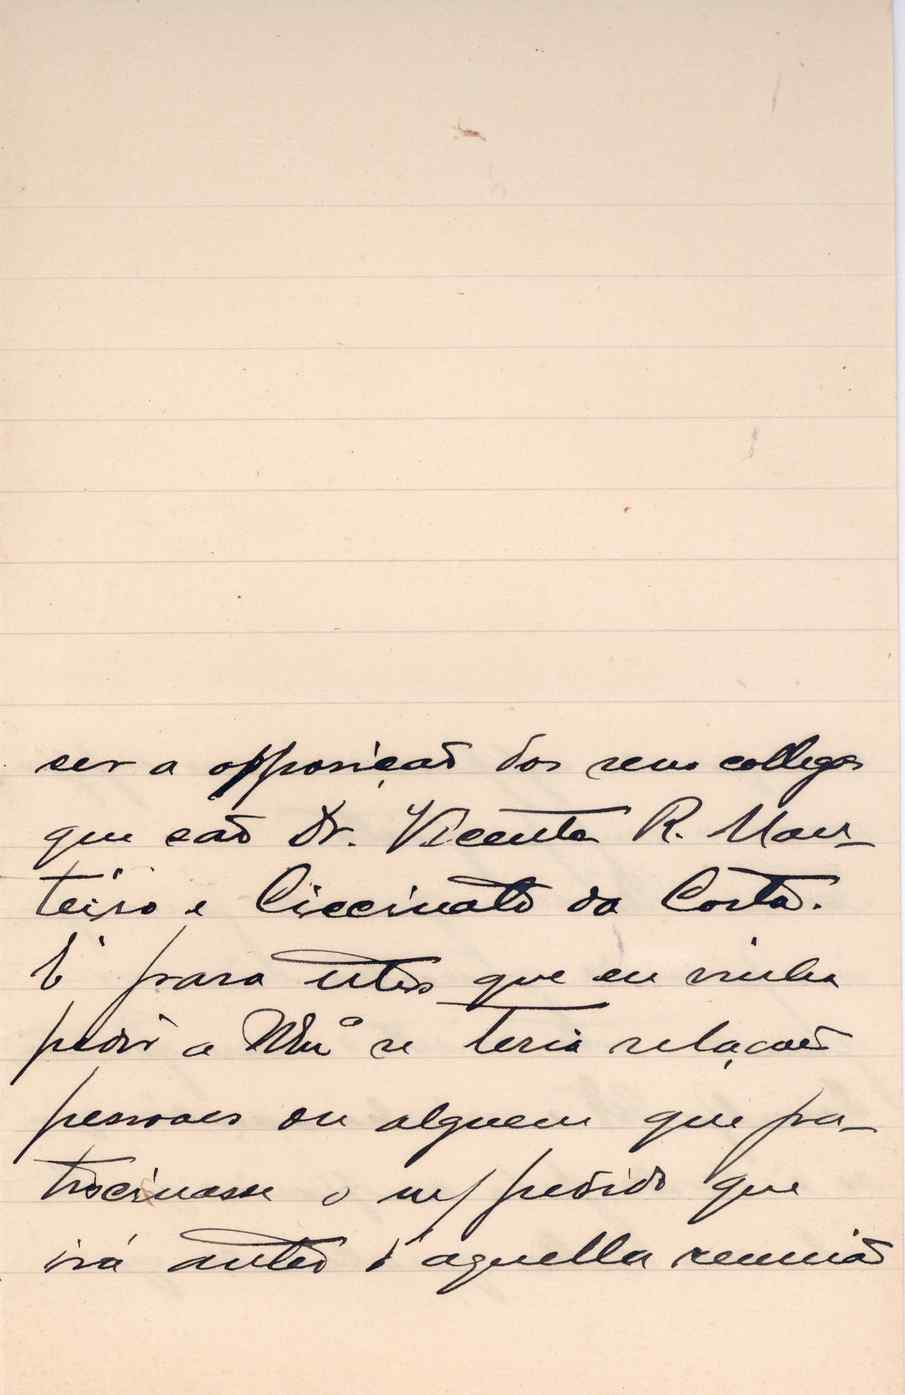 ser a opposição dos seus collegas
que são Dr. Vicente R. Mon-
teiro e Cincinato da Costa.
E' para estes que eu vinha
pedir a se teria relações
pessoaes ou alguem que pa-
trocinasse o m/ pedido que
irá antes d'aquella reunião